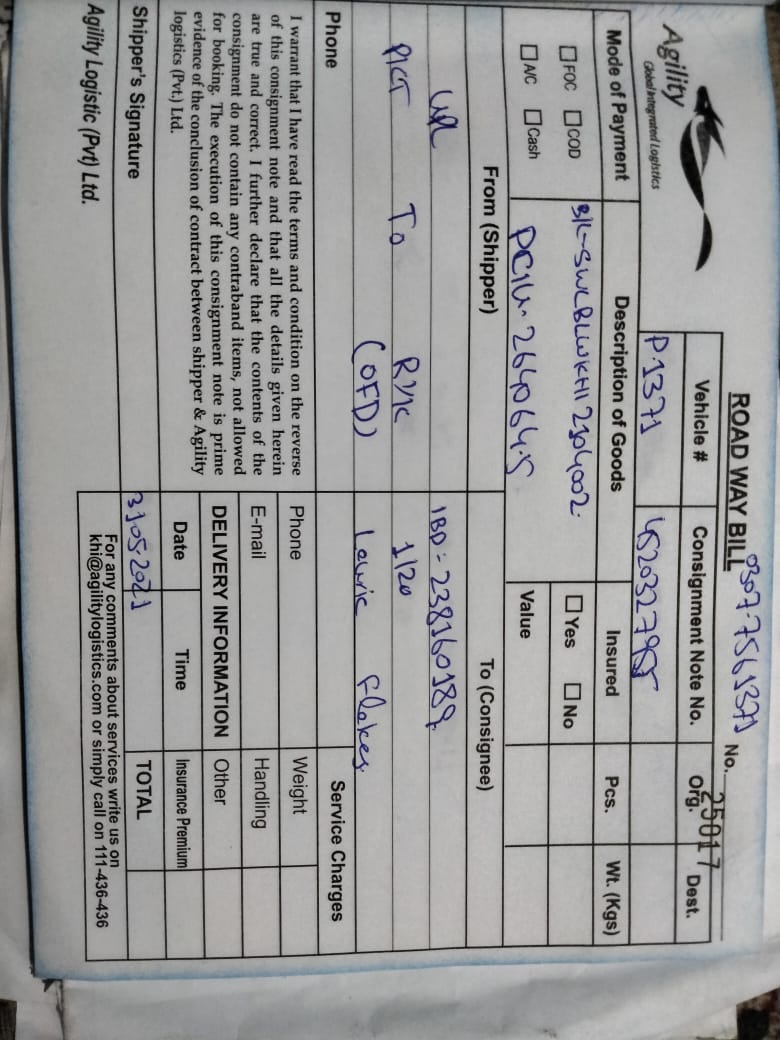 ROAD WAY BILL
0307-7561371
No. 25017
Agility
Global Integrated Logistics
Vehicle #
Consignment Note No.
Org.
Dest.
P-1371
Mode of Payment
Description of Goods
Insured
Pcs.
Wt. (Kgs)
FOC
COD
A/C
Cash
B/L-SWLBLWKHI2104002.
PCIU-264064-5
Yes
No
Value
From (Shipper)
To (Consignee)
IBD = 238160189
PICT To
1/20
(OFD)
Lauric Flakes
Phone
Service Charges
I warrant that I have read the terms and condition on the reverse
of this consignment note and that all the details given herein
are true and correct. I further declare that the contents of the
consignment do not contain any contraband items, not allowed
for booking. The execution of this consignment note is prime
evidence of the conclusion of contract between shipper & Agility
logistics (Pvt.) Ltd.
Phone
Weight
E-mail
Handling
DELIVERY INFORMATION
Other
Date
Time
Insurance Premium
Shipper's Signature
31-05-2021
TOTAL
Agility Logistic (Pvt) Ltd.
For any comments about services write us on
khi@agilitylogistics.com or simply call on 111-436-436